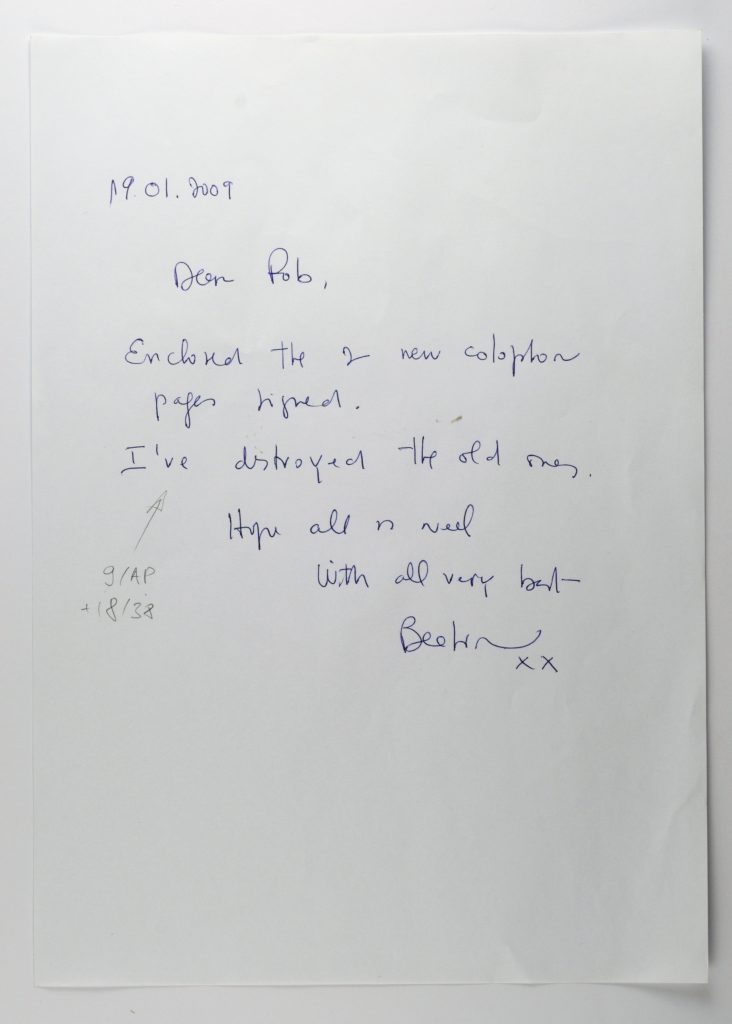 19.01.2009
Dear Rob,
Enclosed the 2 new colophon
pages signed.
I've distroyed the old ones.
Hope all is well
With all very best
xx
9/AP
+18/38